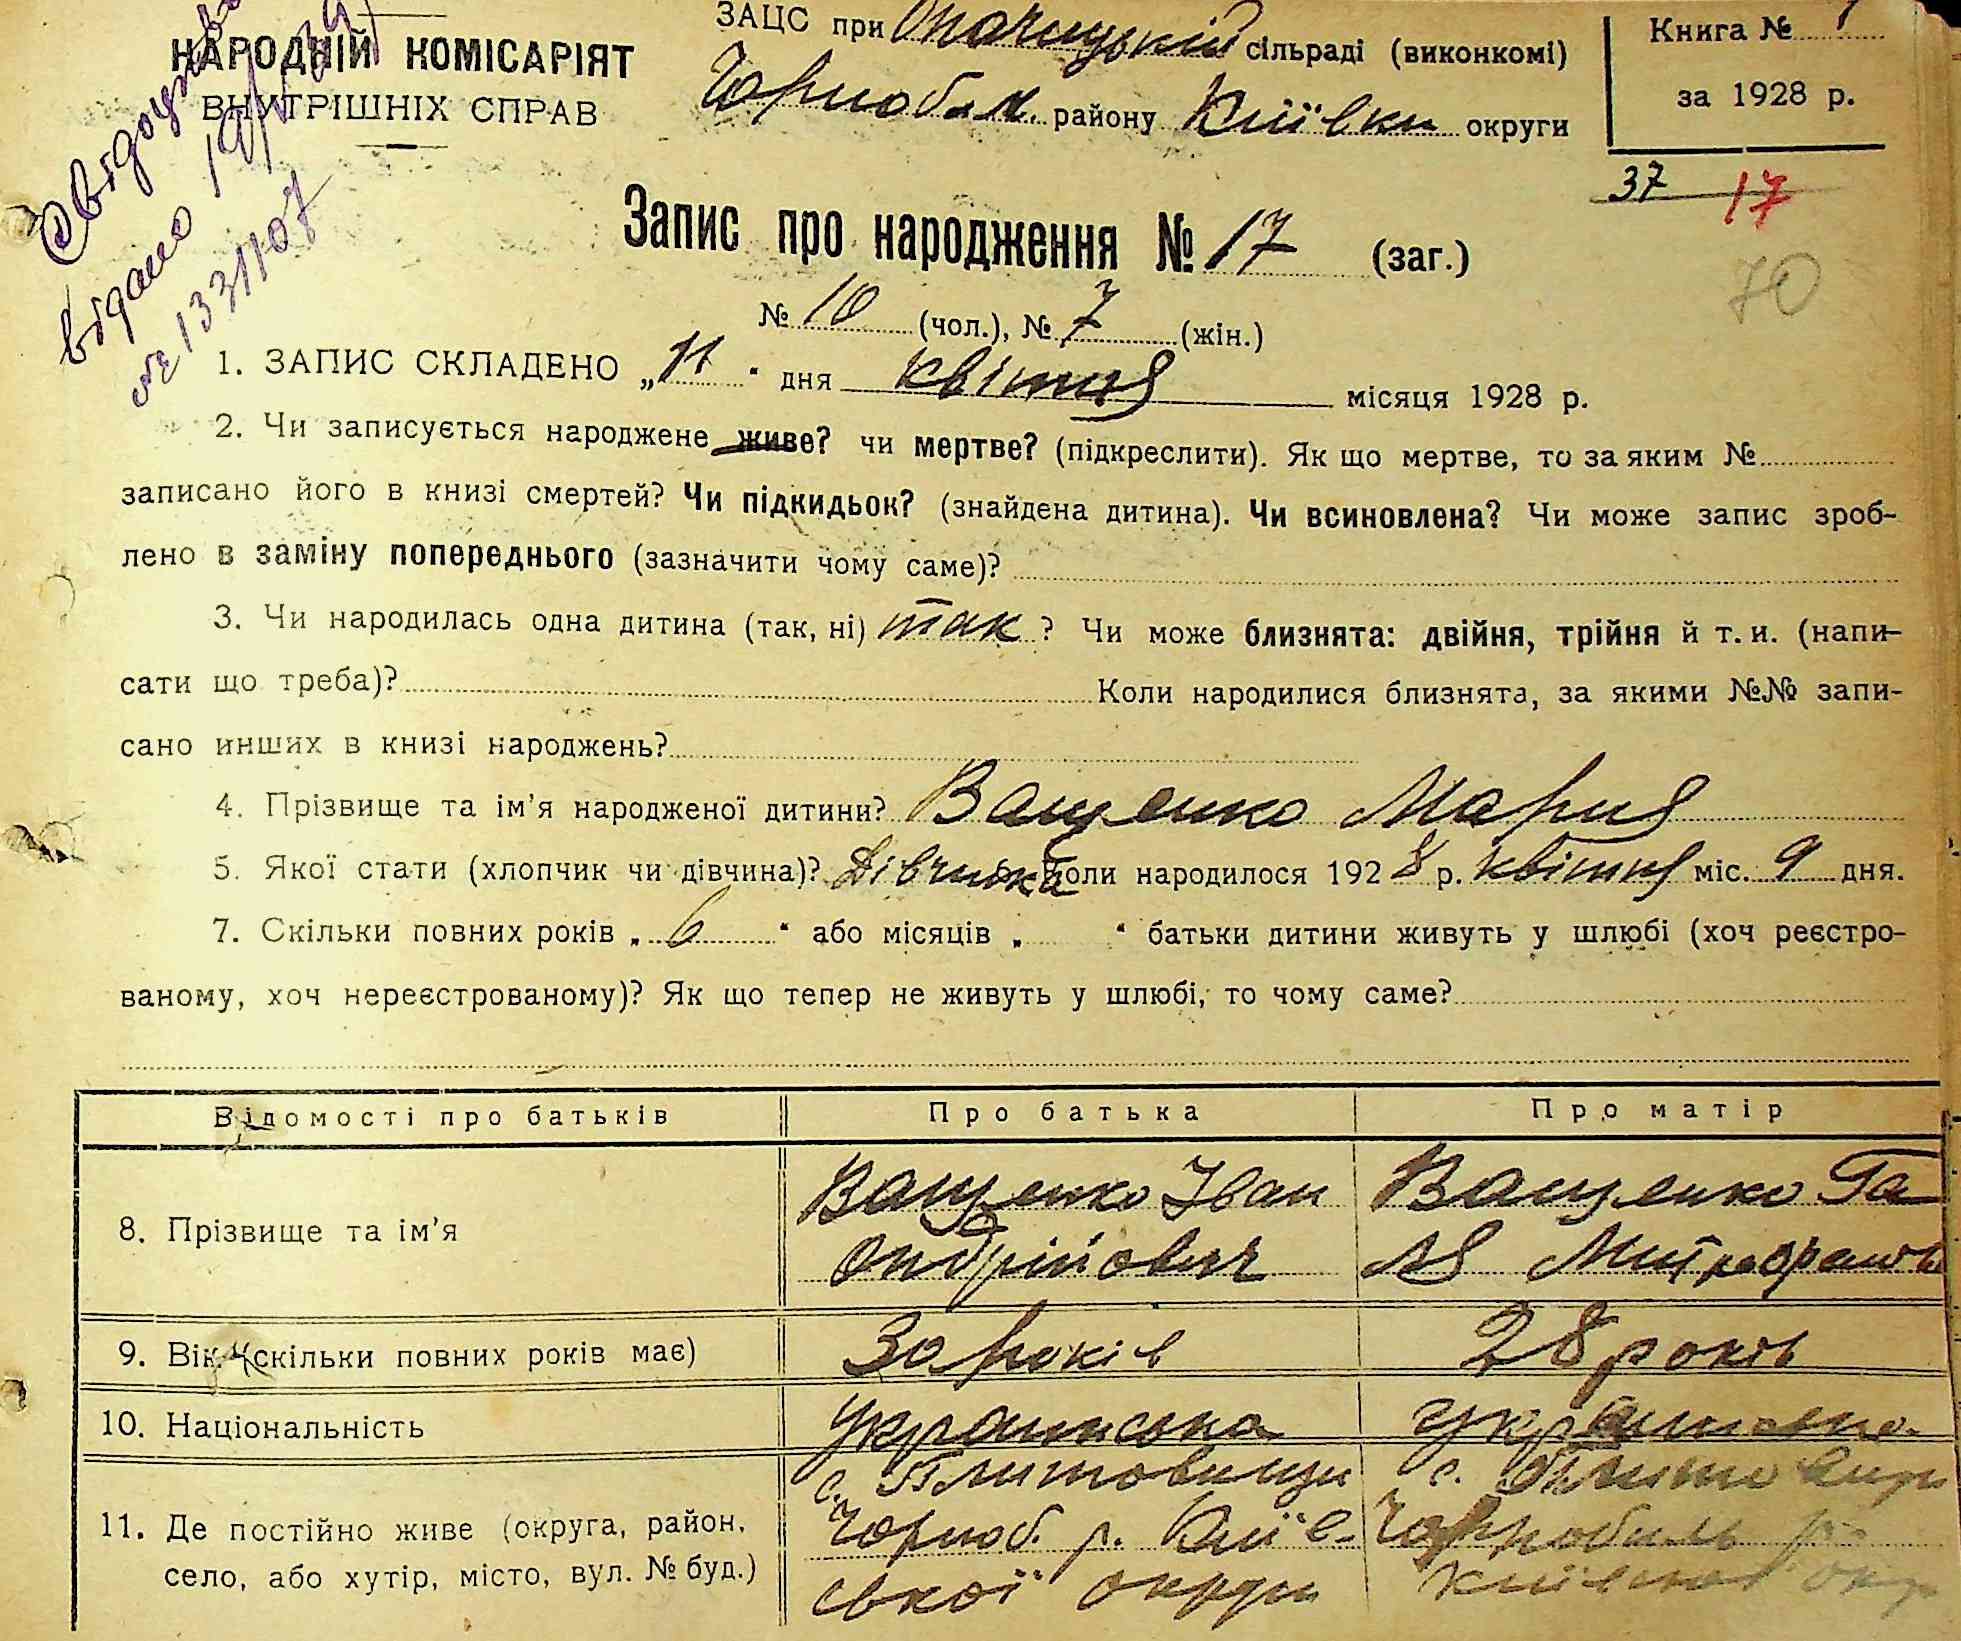 Свідоцтво
відано 19/V
№ 1331107
НАРОДНІЙ КОМІСАРІЯТ
ВНУТРІШНІХ СПРАВ
ЗАЦС при Опачицькій сільраді (виконкомі)
Чорнобил. району Київськ округи
Книга № 1
за 1928 р.
37 17
70
Запис про народження № 17 (заг.)
№ 10 (чол.), № 7 (жін.)
1. ЗАПИС СКЛАДЕНО „11“ дня квітня місяця 1928 р.
2. Чи записується народжене живе? чи мертве? (підкреслити). Як що мертве, то за яким №
записано його в книзі смертей? Чи підкидьок? (знайдена дитина). Чи всиновлена? Чи може запис зроб-
лено в заміну попереднього (зазначити чому саме)?
3. Чи народилась одна дитина (так, ні) так ? Чи може близнята: двійня, трійня й т. и. (напи-
сати що треба)? Коли народилися близнята, за якими №№ запи-
сано инших в книзі народжень?
4. Прізвище та ім’я народженої дитини? Ващенко Мария
5. Якої стати (хлопчик чи дівчина)? Дівчинка Коли народилося 1928 р. квітня міс. 9 дня.
7. Скільки повних років „ 6 “ або місяців „ “ батьки дитини живуть у шлюбі (хоч реєстро-
ваному, хоч нереєстрованому)? Як що тепер не живуть у шлюбі, то чому саме?
Відомості про батьків Про батька Про матір
8. Прізвище та ім’я
Ващенко Іван
Андрійович
Ващенко Га
ля Митрофанів
9. Вік (скільки повних років має) 30 років 28 років
10. Національність українська українська
11. Де постійно живе (округа, район,
село, або хутір, місто, вул. № буд.)
с. Плитовищи
Чорноб. р. Київ-
ської округи
с. Плитовищи
Чорнобиль р.
Київської окр